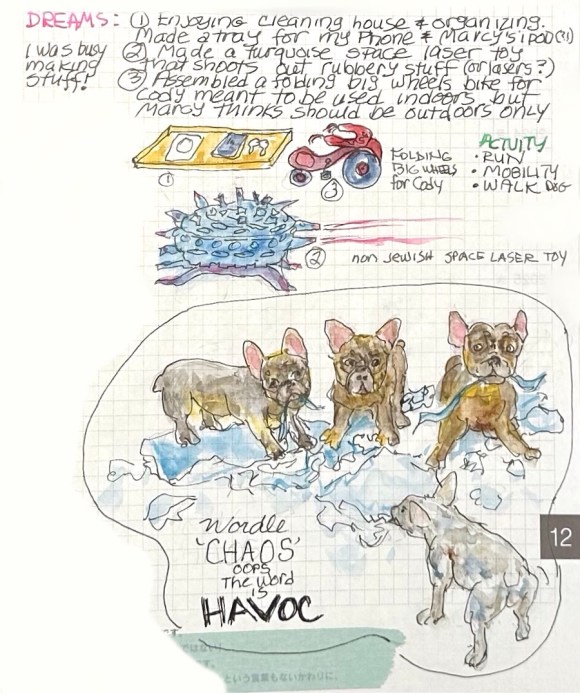 DREAMS: ① Enjoying cleaning house & organizing.
Made a tray for my Phone & Marcy's ipod(s)
I was busy making stuff!
② Made a turquoise space laser toy
that shoots out rubbery stuff (or lasers?)
③ Assembled a folding big wheels bike for
Cody meant to be used indoors but
Marcy thinks should be outdoors only
①
③
FOLDING
BIG WHEELS
for Cody
ACTVITY
• RUN
• MOBILITY
• WALK DOG
②
non JEWISH SPACE LASER TOY
12
Wordle
'CHAOS'
OOPS
The word
is
HAVOC
す。
ではない
す。
という言葉もないかわりに、